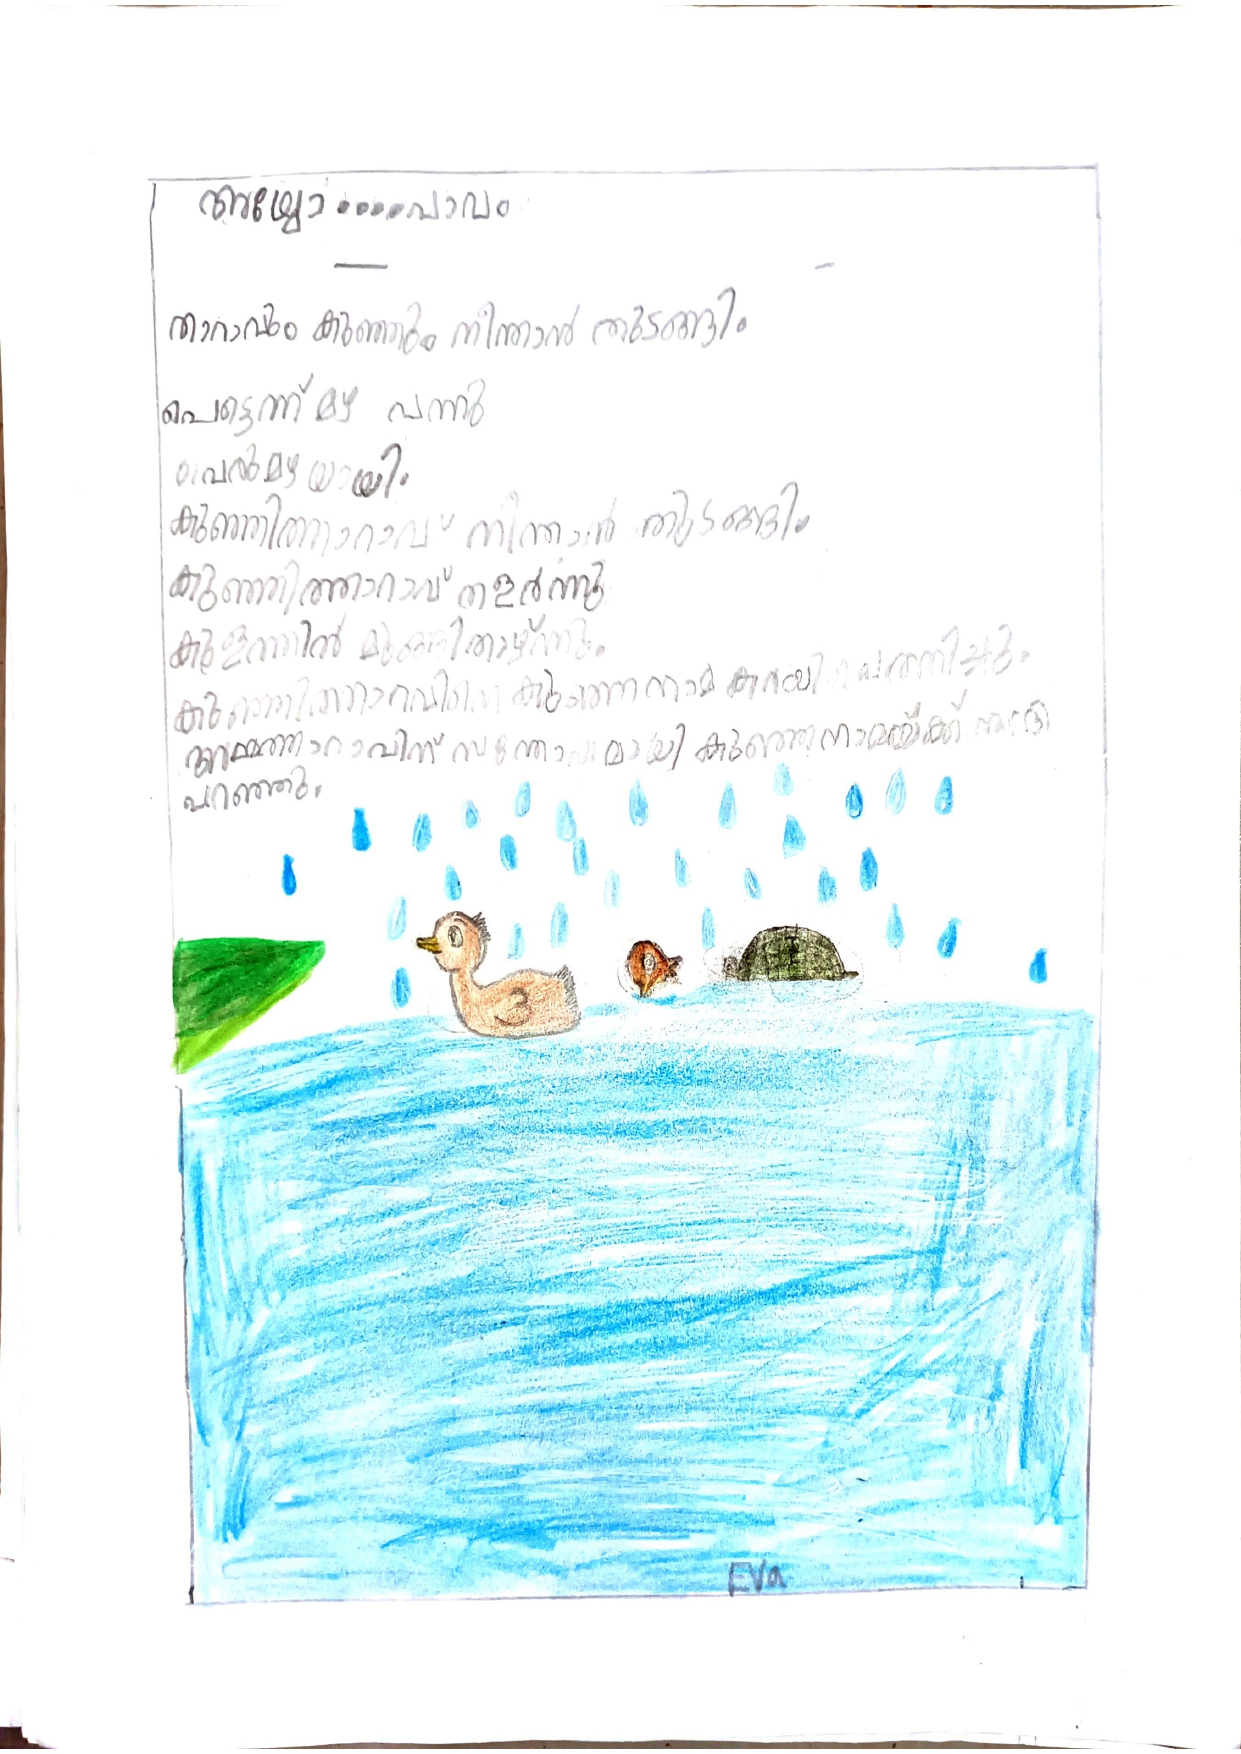 അയ്യോ....പാവം
താറാവും കുഞ്ഞും നീന്താൻ തുടങ്ങി.
പെട്ടെന്ന് മഴ പന്നു
പെൽമഴയായി.
കുഞ്ഞിത്താറാവ് നീന്താൻ തുടങ്ങി.
കുഞ്ഞിത്താറാവ് തളർന്നു
കുളത്തിൽ മുങ്ങിതാഴ്ന്നു.
കുഞ്ഞിത്താറവിനെ കുഞ്ഞനാമ കരയി
അമ്മത്താറാവിന് സന്തോഷമായി കുഞ്ഞനാമയ്ക്ക് നന്ദി
പറഞ്ഞു.
EVa